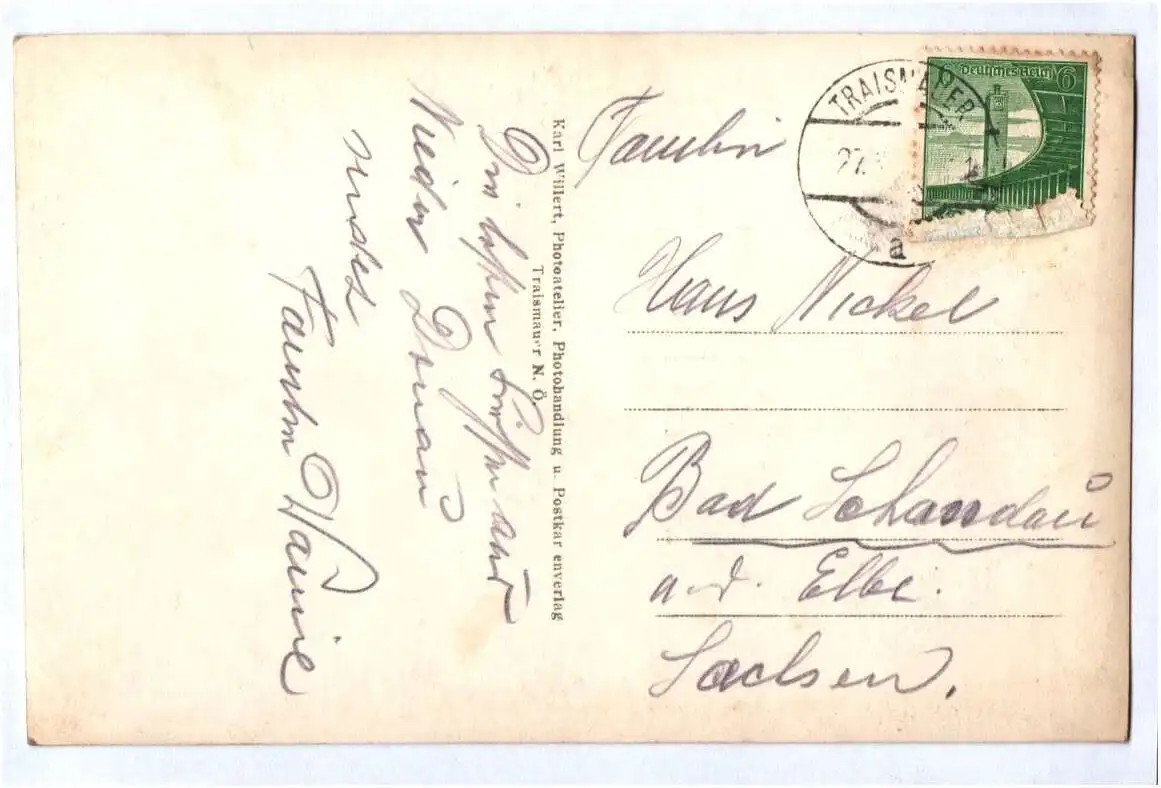 Die besten Grüße aus
Nieder Donau
sendet
Familie Wannie
Karl Willert, Photoatelier, Photohandlung u. Postkar enverlag
Traismauer N. Ö.
TRAISMAUER
27.
a
Deutsches Reich 6
Familie
Hans Nickel
Bad Schandau
a. d. Elbe.
Sachsen.